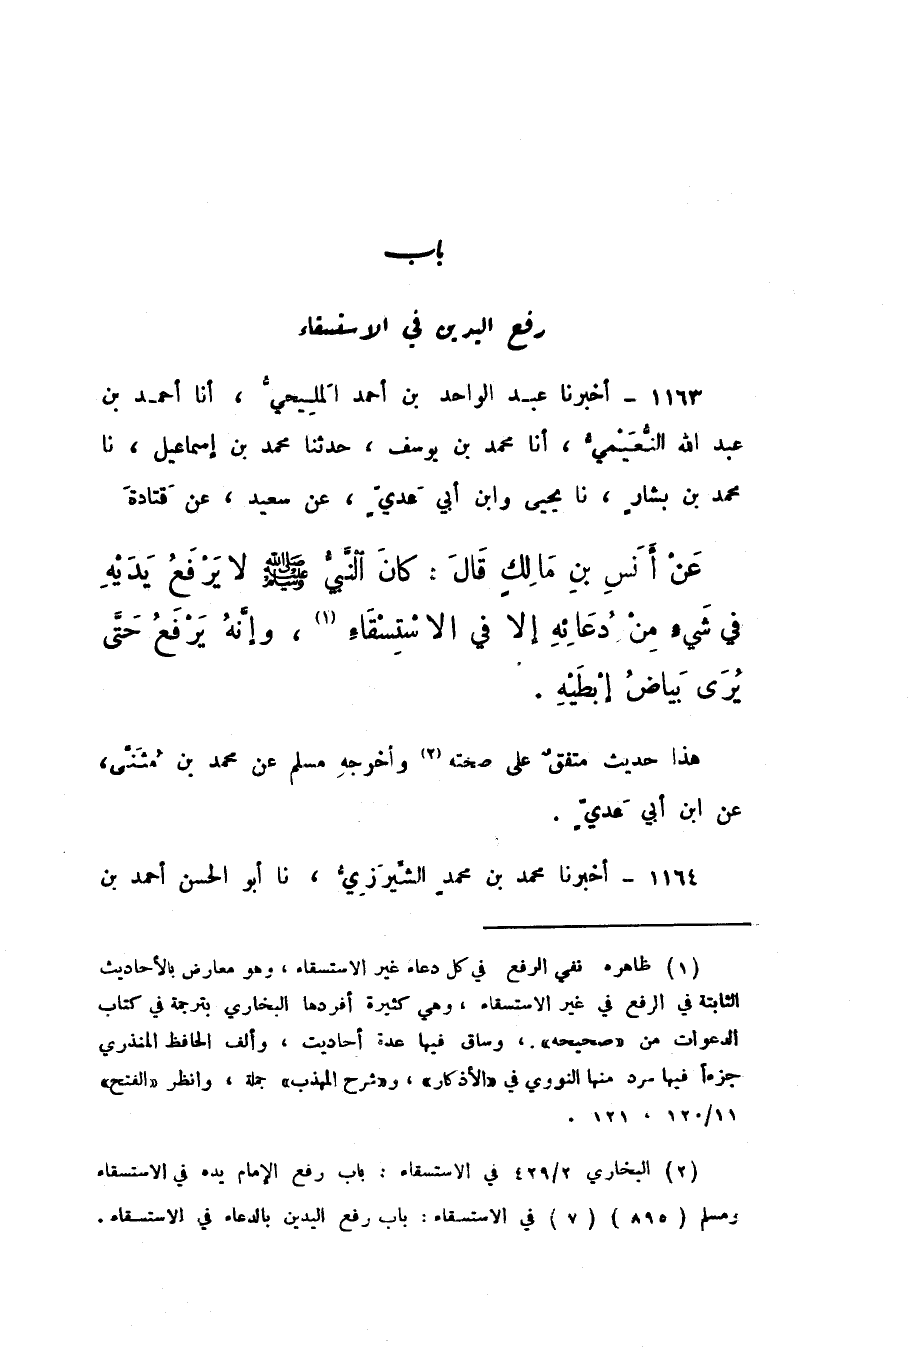 باب
رفع اليدين في الاستسقاء
١١٦٣ - أخبرنا عبد الواحد بن أحمد المليحيُّ ، أنا أحمد بن
عبد الله النُّعَيْميُّ ، أنا محمد بن يوسف ، حدثنا محمد بن إسماعيل ، نا
محمد بن بشارٍ ، نا يحيى وابن أبي عَديٍّ ، عن سعيد ، عن قَتادةَ
عَنْ أَنَسِ بنِ مَالِكٍ قَالَ : كانَ النَّبيُّ ﷺ لا يَرْفَعُ يَدَيْهِ
في شَيءٍ مِنْ دُعَائِهِ إلا في الاسْتِسْقَاءِ (١) ، وإنَّهُ يَرْفَعُ حَتَّى
يُرَى بَياضُ إبْطَيْهِ .
هذا حديث متفقٌ على صحته (٢) وأخرجه مسلم عن محمد بن مُثَنَّى،
عن ابن أبي عَديٍّ .
١١٦٤ - أخبرنا محمد بن محمدٍ الشِّيرَزِيُّ ، نا أبو الحسن أحمد بن
(١) ظاهره نفي الرفع في كل دعاء غير الاستسقاء ، وهو معارض بالأحاديث
الثابتة في الرفع في غير الاستسقاء ، وهي كثيرة أفردها البخاري بترجمة في كتاب
الدعوات من «صحيحه» ، وساق فيها عدة أحاديث ، وألف الحافظ المنذري
جزءاً فيها سرد منها النووي في «الأذكار» ، و«شرح المهذب» جملة ، وانظر «الفتح»
١١/١٢٠ ، ١٢١ .
(٢) البخاري ٤٢٩/٢ في الاستسقاء : باب رفع الإمام يده في الاستسقاء
ومسلم ( ٨٩٥ ) ( ٧ ) في الاستسقاء : باب رفع اليدين بالدعاء في الاستسقاء .